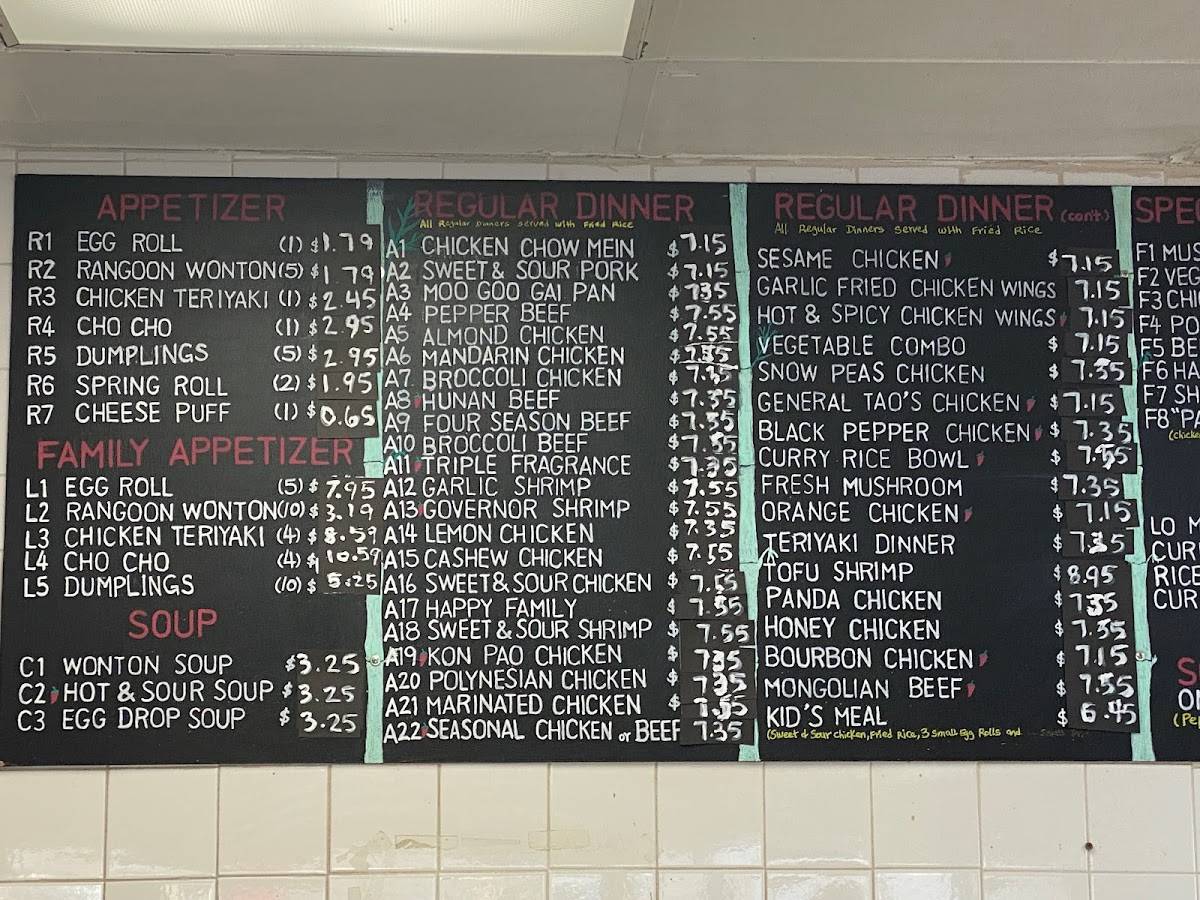 APPETIZER
R1 EGG ROLL (1) $1.79
R2 RANGOON WONTON (5) $1.79
R3 CHICKEN TERIYAKI (1) $2.45
R4 CHO CHO (1) $2.95
R5 DUMPLINGS (5) $2.95
R6 SPRING ROLL (2) $1.95
R7 CHEESE PUFF (1) $0.65
FAMILY APPETIZER
L1 EGG ROLL (5) $7.95
L2 RANGOON WONTON (10) $3.19
L3 CHICKEN TERIYAKI (4) $8.59
L4 CHO CHO (4) $10.59
L5 DUMPLINGS (10) $5.25
SOUP
C1 WONTON SOUP $3.25
C2 HOT & SOUR SOUP $3.25
C3 EGG DROP SOUP $3.25
REGULAR DINNER
All Regular Dinners served with Fried Rice
A1 CHICKEN CHOW MEIN $7.15
A2 SWEET & SOUR PORK $7.15
A3 MOO GOO GAI PAN $7.35
A4 PEPPER BEEF $7.55
A5 ALMOND CHICKEN $7.55
A6 MANDARIN CHICKEN $
A7 BROCCOLI CHICKEN $
A8 HUNAN BEEF $7.35
A9 FOUR SEASON BEEF $7.35
A10 BROCCOLI BEEF $
A11 TRIPLE FRAGRANCE $7.35
A12 GARLIC SHRIMP $7.55
A13 GOVERNOR SHRIMP $7.55
A14 LEMON CHICKEN $7.35
A15 CASHEW CHICKEN $
A16 SWEET & SOUR CHICKEN $
A17 HAPPY FAMILY $
A18 SWEET & SOUR SHRIMP $7.55
A19 KON PAO CHICKEN $7.35
A20 POLYNESIAN CHICKEN $7.35
A21 MARINATED CHICKEN $
A22 SEASONAL CHICKEN or BEEF 7.35
REGULAR DINNER (cont.)
All Regular Dinners Served with Fried Rice
SESAME CHICKEN $7.15
GARLIC FRIED CHICKEN WINGS 7.15
HOT & SPICY CHICKEN WINGS 7.15
VEGETABLE COMBO $7.15
SNOW PEAS CHICKEN $7.35
GENERAL TAO'S CHICKEN $7.15
BLACK PEPPER CHICKEN $7.35
CURRY RICE BOWL $
FRESH MUSHROOM $7.35
ORANGE CHICKEN $7.15
TERIYAKI DINNER $7.35
TOFU SHRIMP $8.95
PANDA CHICKEN $7.35
HONEY CHICKEN $7.35
BOURBON CHICKEN $7.15
MONGOLIAN BEEF $7.55
KID'S MEAL $6.45
(Sweet & Sour Chicken, Fried Rice, 3 Small Egg Rolls and
SPE
F1 MUS
F2 VEG
F3 CHI
F4 PO
F5 BE
F6 HA
F7 SH
F8 "P
(chicke
LO M
CUR
RICE
CUR
S
(Pe